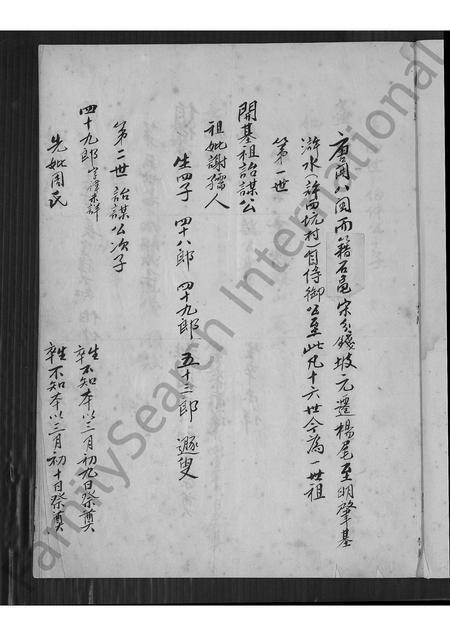 唐開八図而籍石黽宋分錢坡元遷楊尾至明肇基
滸水(許西坑村)自侍御公至此凡十六世今為一世祖
第一世
開基祖詒謀公
祖妣謝孺人
生四子 四十八郎 四十九郎 五十三郎 遯叟
第二世 詒謀公次子
四十九郎 字諱未詳
生卒不知本以三月初九日祭奠
先妣周氏
生卒不知本以三月初十日祭奠
FamilySearch International